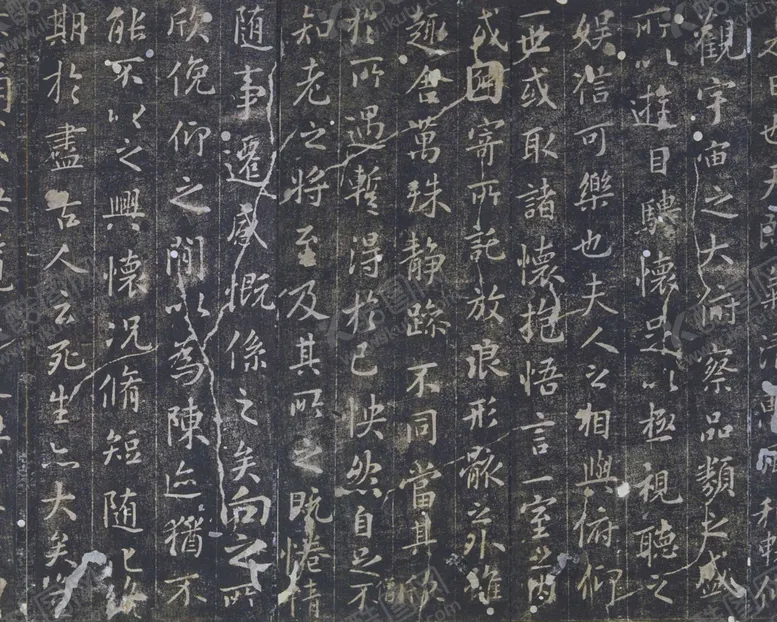 是日也天朗氣清惠風和暢仰
觀宇宙之大俯察品類之盛
所以遊目騁懷足以極視聽之
娛信可樂也夫人之相與俯仰
一世或取諸懷抱悟言一室之內
或因寄所託放浪形骸之外雖
趣舍萬殊静躁不同當其欣
於所遇蹔得於己怏然自足不
僧
知老之將至及其所之既惓情
隨事遷感慨係之矣向之所
欣俛仰之間以為陳迹猶不
能不以之興懷況脩短隨化終
期於盡古人云死生亦大矣豈